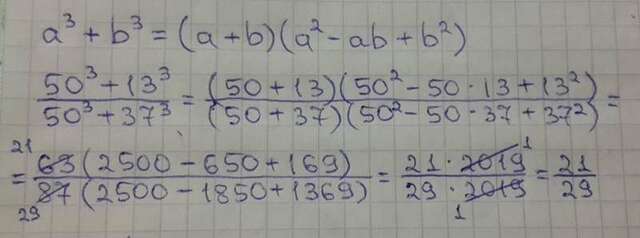 a³ + b³ = (a + b)(a² - ab + b²)
50³ + 13³ / 50³ + 37³ = (50 + 13)(50² - 50 · 13 + 13²) / (50 + 37)(50² - 50 · 37 + 37²) =
= 21 63(2500 - 650 + 169) / 29 87(2500 - 1850 + 1369) = 21 · 2019 1 / 29 · 2019 1 = 21 / 29